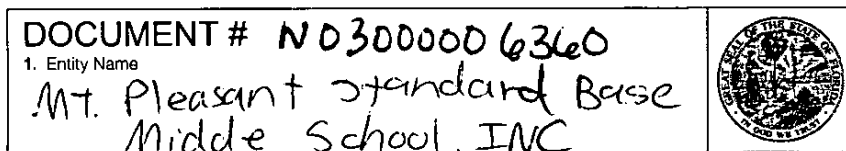 DOCUMENT # N03000006360
1. Entity Name
Mt. Pleasant Standard Base
Middle School, INC
GREAT SEAL OF THE STATE OF FLORIDA
IN GOD WE TRUST